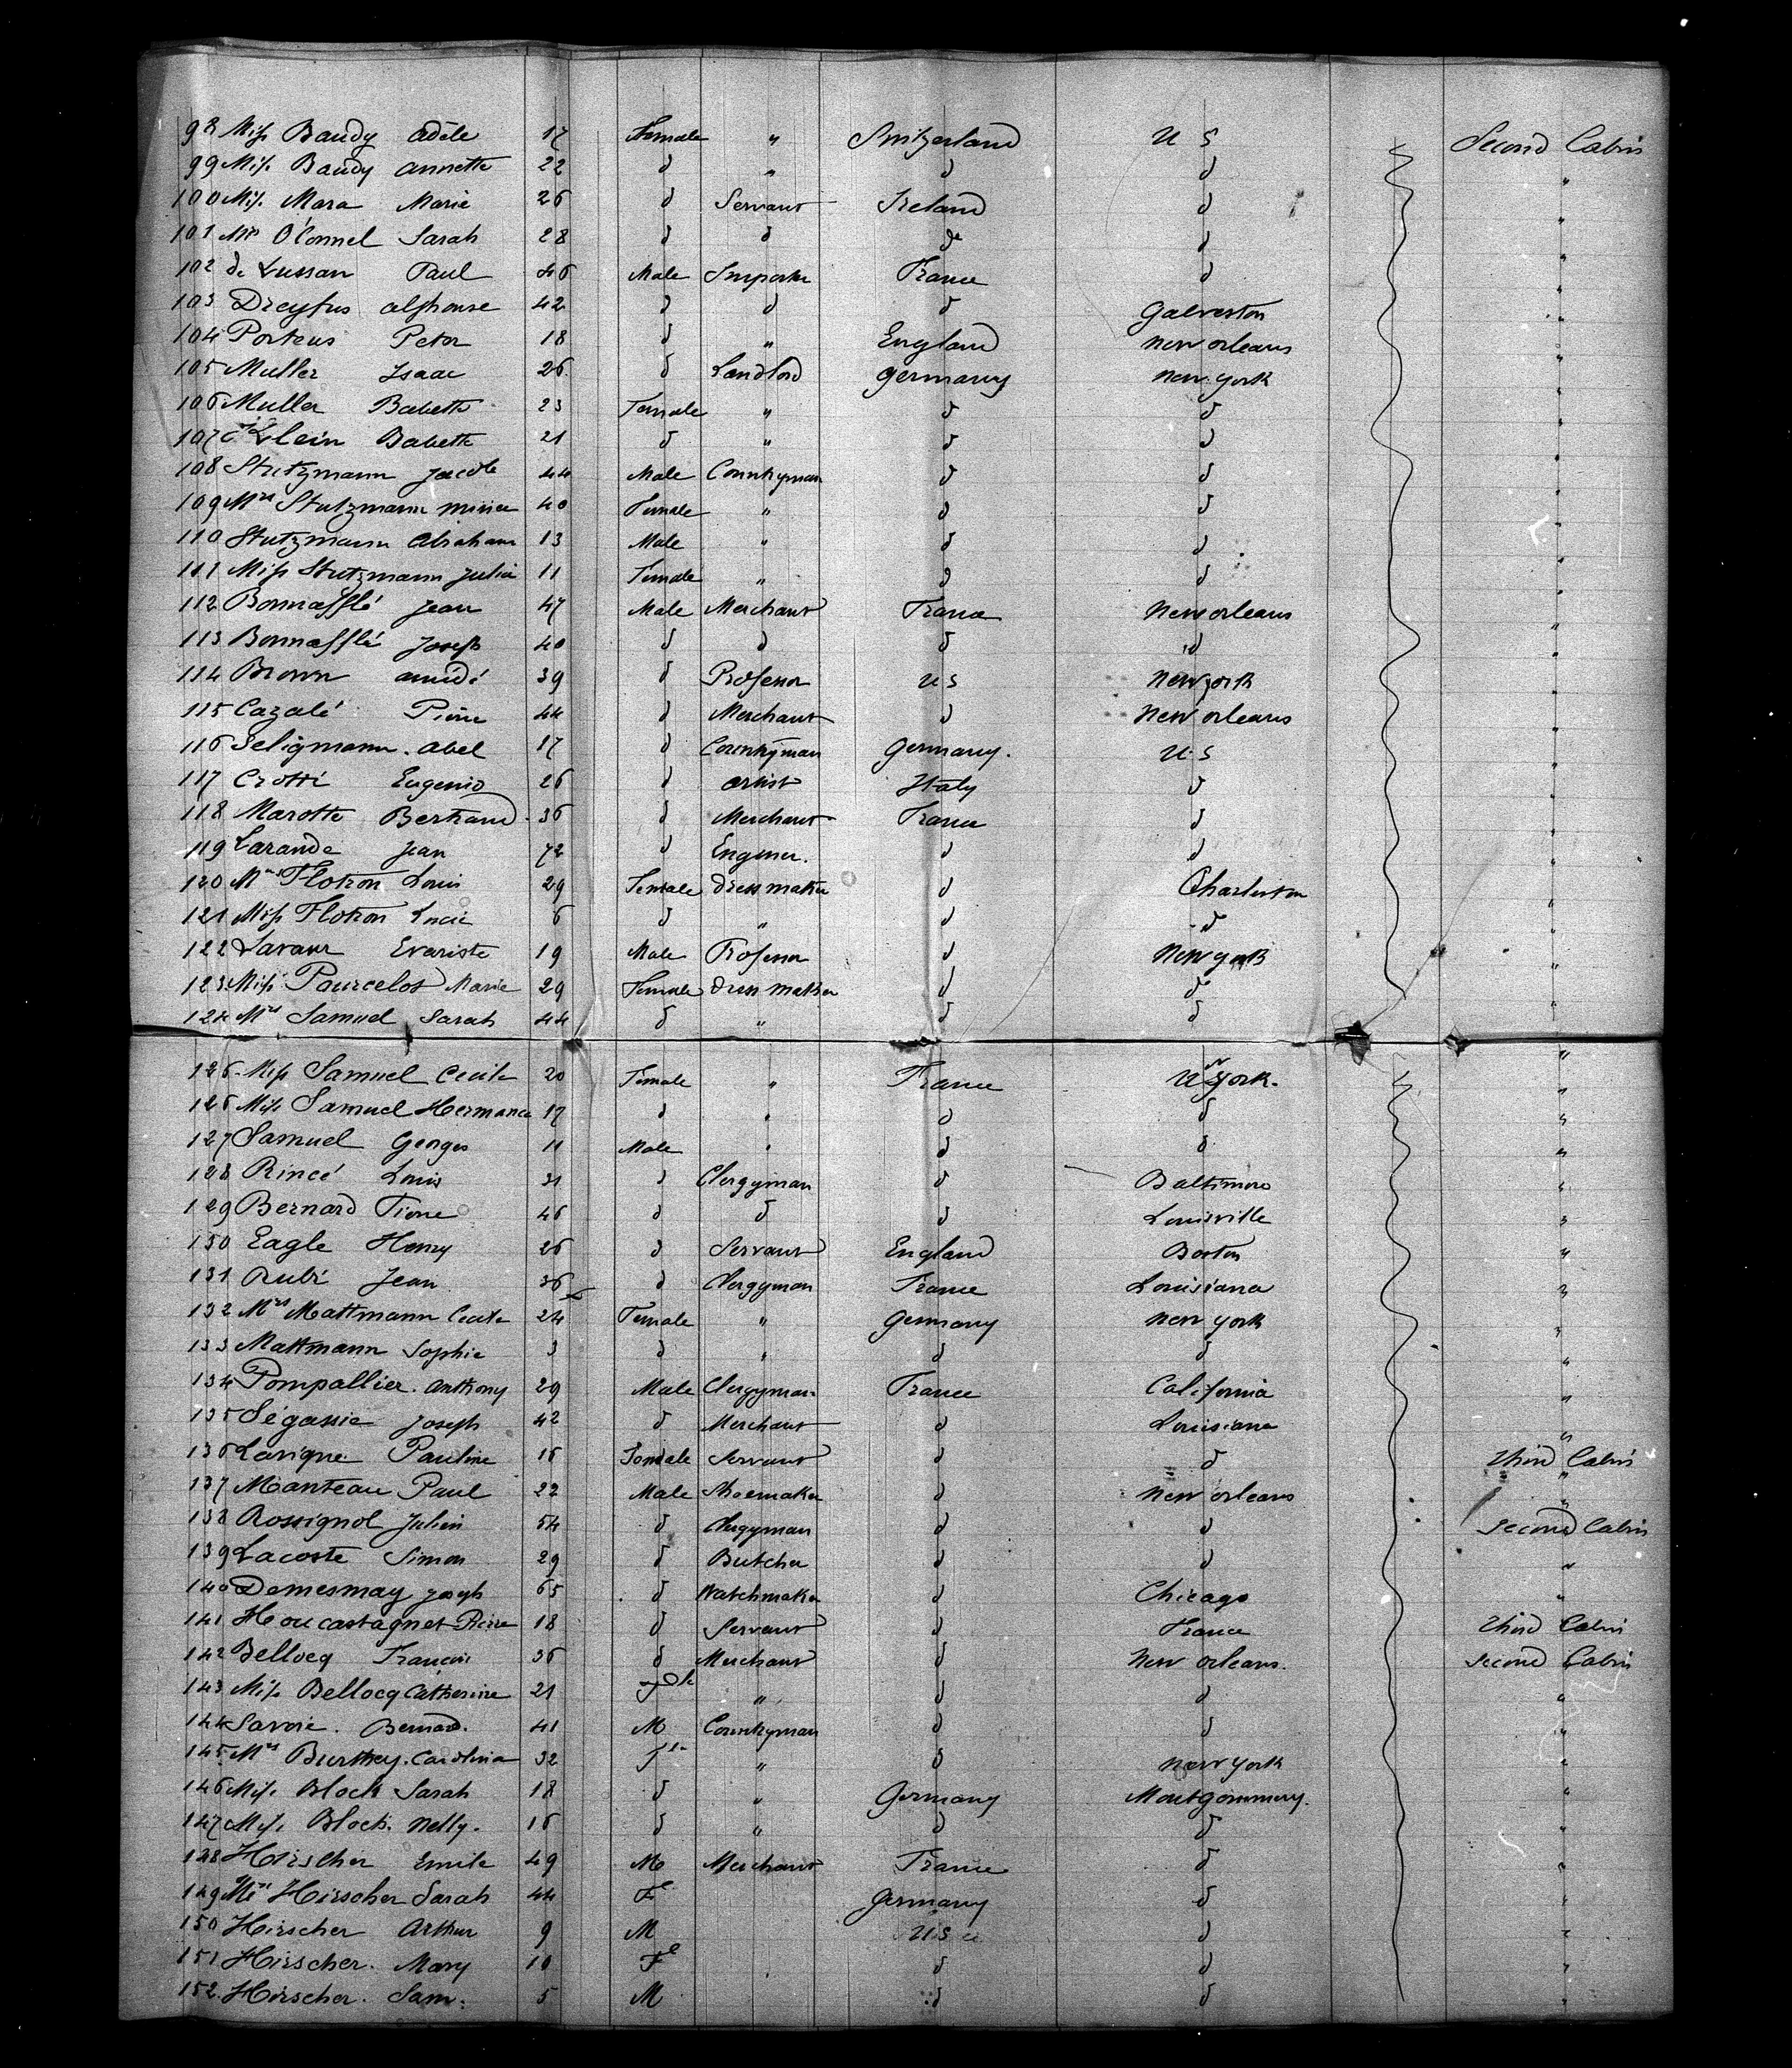 98 Miss Baudy Adèle 17 Female " Switzerland U S Second Cabin
99 Miss Baudy Annette 22 d " d d "
100 Miss Mara Marie 26 d Servant Ireland d "
101 Mrs O'Connel Sarah 28 d d do d "
102 de Lussan Paul 46 Male Importer France d "
103 Dreyfus Alphonse 42 d d d Galveston "
104 Porteus Peter 18 d " England New Orleans "
105 Muller Isaac 26 d Landlord Germany New York "
106 Muller Babette 23 Female " d d "
107 Klein Babette 21 d " d d "
108 Stutzmann Jacob 44 Male Countryman d d "
109 Mrs Stutzmann 40 Female " d d "
110 Stutzmann Abraham 13 Male " d d "
111 Miss Stutzmann Julia 11 Female " d d "
112 Bonnafflé Jean 47 Male Merchant France New Orleans "
113 Bonnafflé Joseph 40 d d d d "
114 Brown Amédé 39 d Professor U S New York "
115 Cazalé Pierre 44 d Merchant d New Orleans "
116 Seligmann. Abel 17 d Countryman Germany. U S "
117 Crotti Eugenio 26 d Artist Italy d "
118 Marotte Bertrand 36 d Merchant France d "
119 Larande Jean 72 d Engineer. d d "
120 Mrs Flotron Louis 29 Female Dress maker d Charleston "
121 Miss Flotron Lucie 6 d " d d "
122 Lavaur Evariste 19 Male Professor d New York "
123 Miss Pourcelot Marie 29 Female Dress maker d do "
124 Mrs Samuel Sarah 44 d " d d "
125. Miss Samuel Cecile 20 Female " France N York. "
126 Miss Samuel Hermance 17 d " d d "
127 Samuel Georges 11 Male " d d "
128 Rincé Louis 31 d Clergyman d Baltimore "
129 Bernard Pierre 46 d d d Louisville "
130 Eagle Henry 26 d Servant England Boston "
131 Rubi Jean 36 d Clergyman France Louisiana "
132 Mrs Mattmann Cecile 24 Female " Germany New York "
133 Mattmann Sophie 3 d " d d "
134 Pompallier. Anthony 29 Male Clergyman France California "
135 Ségassie Joseph 42 d Merchant d Louisiana "
136 Lavigne Pauline 16 Female Servant d d Third Cabin
137 Manteau Paul 22 Male Shoemaker d New Orleans "
138 Rossignol Julien 54 d Clergyman d d Second Cabin
139 Lacoste Simon 29 d Butcher d d "
140 Demesmay Joseph 65 d Watchmaker d Chicago "
141 Houcastagnet Pierre 18 d Servant d France Third Cabin
142 Bellocq François 36 d Merchant d New Orleans. Second Cabin
143 Miss Bellocq Catherine 21 Fle " d d "
144 Savoie. Bernard. 41 M Countryman d d "
145 Mrs Burthey. Carolina 32 Fle " d New York "
146 Miss Block Sarah 18 d " Germany Montgommery. "
147 Miss Block. Nelly. 16 d " d d "
148 Hirscher Emile 49 M Merchant France d "
149 Mrs Hirscher Sarah 44 Fe Germany d "
150 Hirscher Arthur 9 M U S d "
151 Hirscher. Mary 10 Fe d d "
152. Hirscher. Sam. 5 M d d "